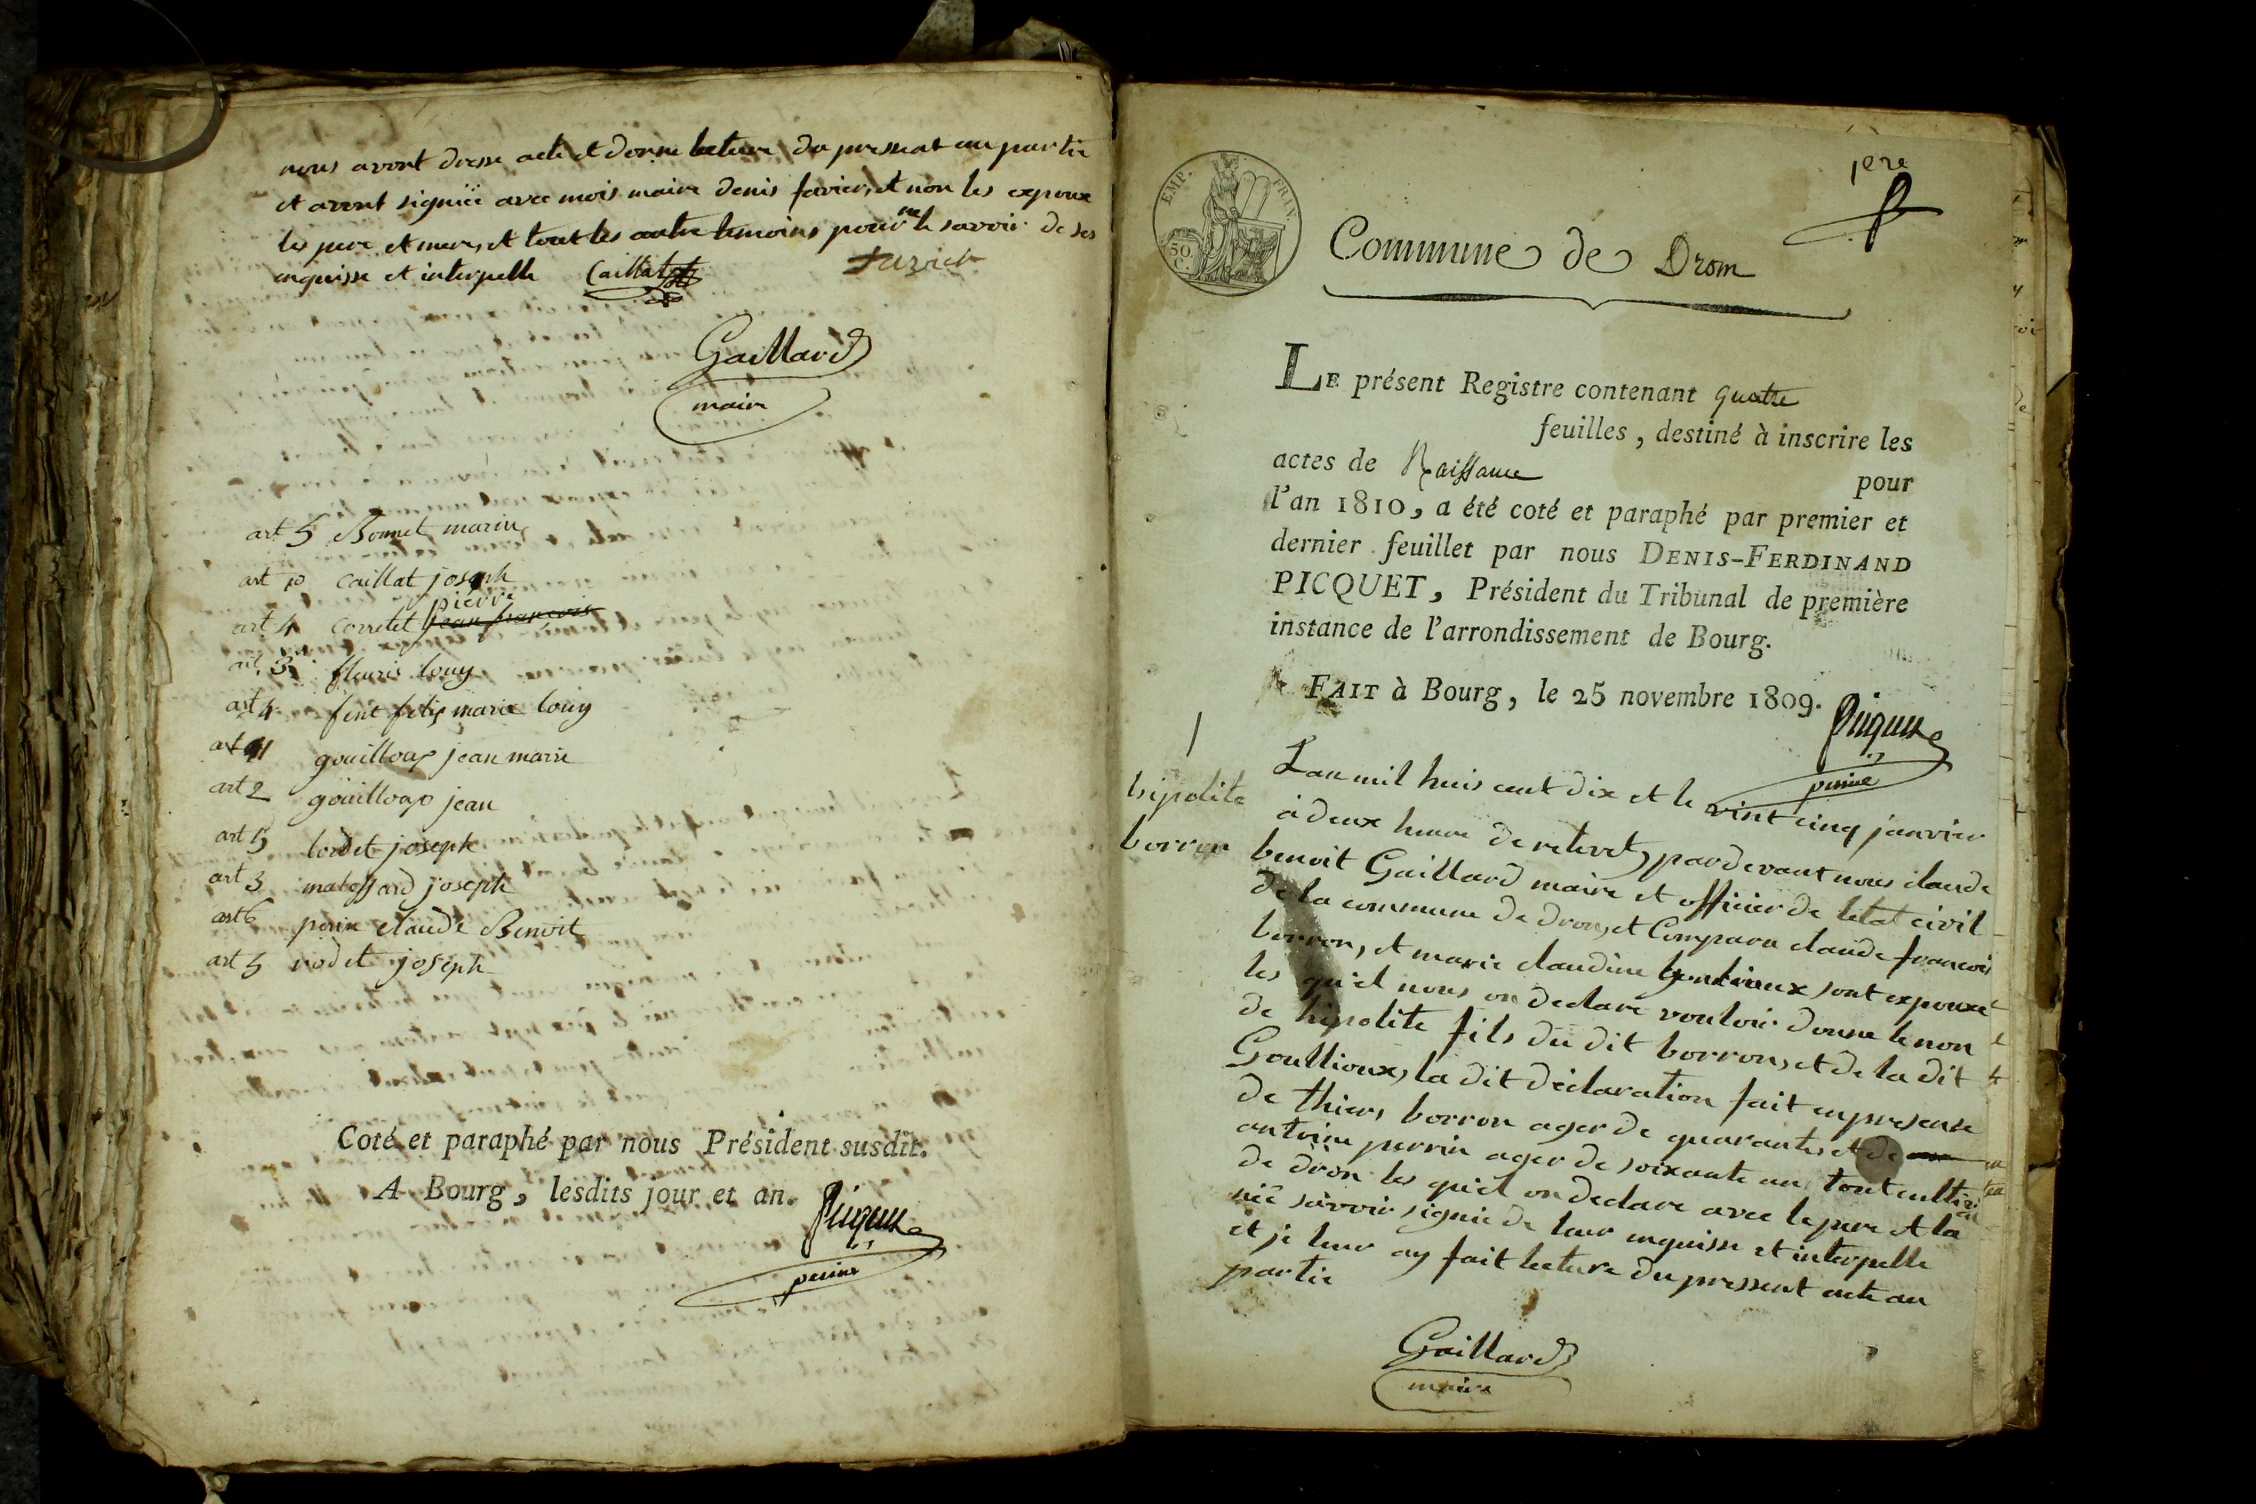 nous avont dresse acte et donne lecture du pressent au partie
et avont signiéé avec mois maire denis favier, et non les expoux
les pere et mere, et tout les autre temoins pour ne le savoir de ses
enquisse et interpelle Caillat favier
Gaillard
maire
art 5 Bonnet marin
art 10 caillat joseph
pierre
art 4 corretet jean françois
art 3 fleuris louy
art 4 marie louy
art 11 gouilloux jean marie
art 2 gouilloux jean
art 5 lordet joseph
art 3 joseph
art 6 perin claude Benoit
art 5 rodet joseph
Coté et paraphé par nous Président susdit.
A Bourg, lesdits jour et an.
Picquet
1ere
EMP. FRIV.
50.
C.
Commune de Drom
LE présent Registre contenant quatre
feuilles, destiné à inscrire les
actes de Naissance pour
l'an 1810, a été coté et paraphé par premier et
dernier feuillet par nous DENIS-FERDINAND
PICQUET, Président du Tribunal de première
instance de l'arrondissement de Bourg.
FAIT à Bourg, le 25 novembre 1809.
Picquet
1
hipolite
borron
Lan mil huis cent dix et le vint cinq janvier
à deux heure de relevet, pardevant nous claude
benoit Gaillard maire et officier de letat civil
de la commune de dron, et Comparu claude francois
borron, et marie claudine sont expouxe
les qu'el nous on declare vouloir donne le non
de hipolite fils du dit borron, et de la dit
Goullioux, la dit déclaration fait en presense
de thiers borron ager de quarante, et de
antoine perrin ager de soixante an tout cultiv
de dron les qu'el on declare avec le pere et la
niê savoir signie de leur enquisse et interpelle
et je leur ay fait lecture du pressent acte au
partie
Gaillard
maire